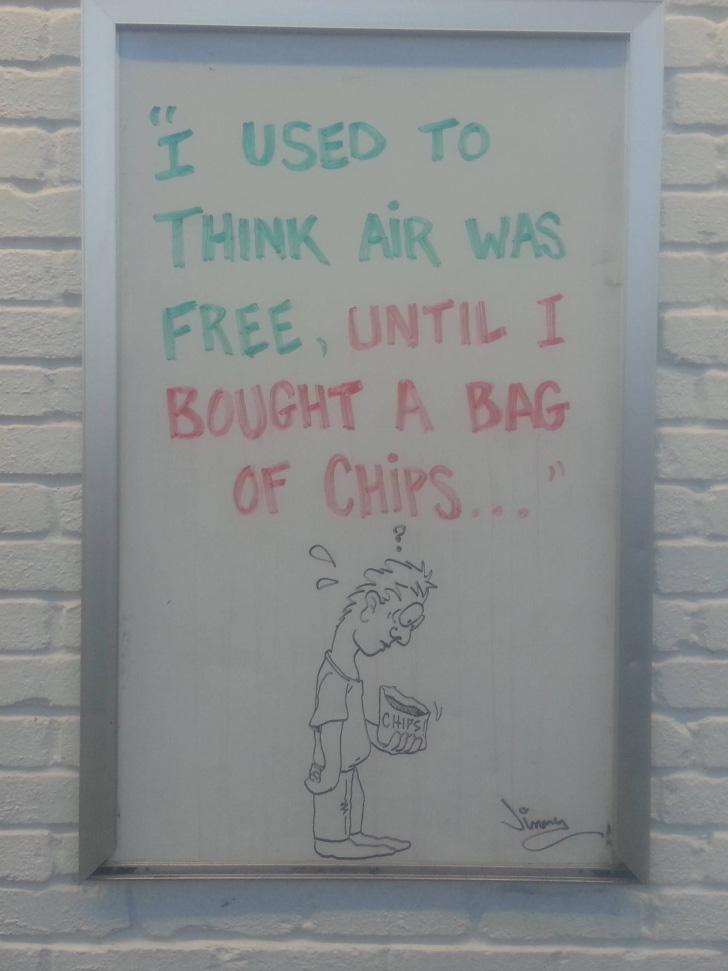 "I USED TO
THINK AiR WAS
FREE, UNTIL I
BOUGHT A BAG
OF CHiPS..."
?
CHIPS!
Jimmy